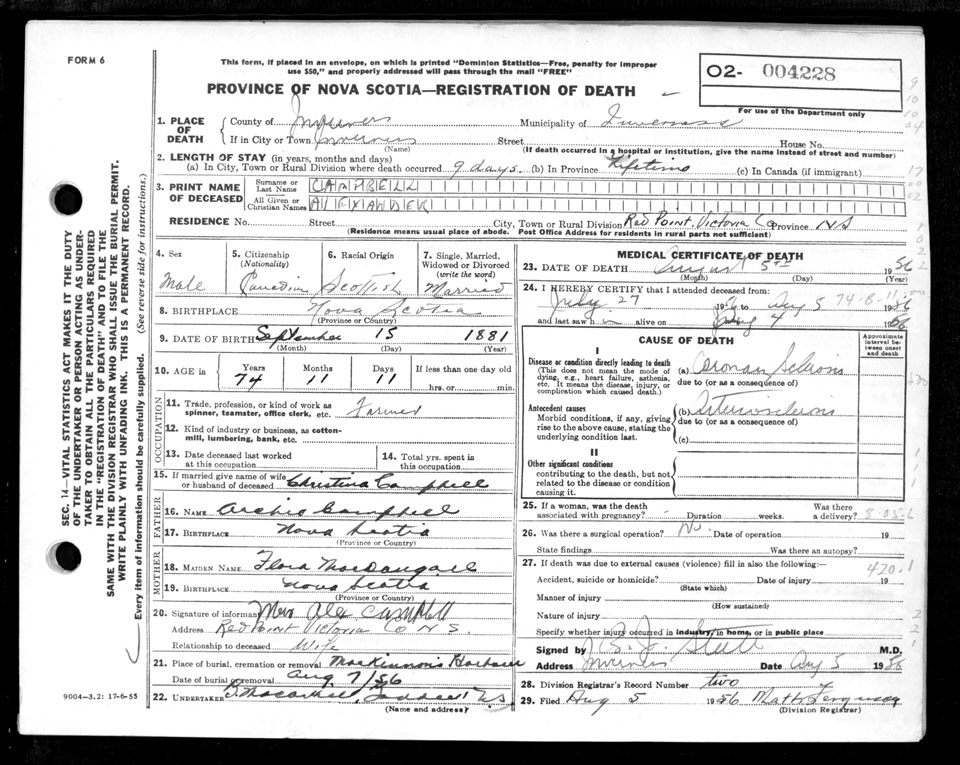 FORM 6
This form, if placed in an envelope, on which is printed "Dominion Statistics—Free, penalty for improper
use $50," and properly addressed will pass through the mail "FREE"
PROVINCE OF NOVA SCOTIA—REGISTRATION OF DEATH
O2- 004228
For use of the Department only
1. PLACE OF DEATH
County of Inverness Municipality of Inverness
If in City or Town Inverness Street House No.
(Name) (If death occurred in a hospital or institution, give the name instead of street and number)
2. LENGTH OF STAY (in years, months and days)
(a) In City, Town or Rural Division where death occurred 9 days. (b) In Province Lifetime (c) In Canada (if immigrant)
3. PRINT NAME OF DECEASED
Surname or Last Name CAMPBELL
All Given or Christian Names ALEXANDER
RESIDENCE No. Street City, Town or Rural Division Red Point, Victoria Co Province NS
(Residence means usual place of abode. Post Office Address for residents in rural parts not sufficient)
4. Sex
Male
5. Citizenship
(Nationality)
Canadian
6. Racial Origin
Scottish
7. Single, Married,
Widowed or Divorced
(write the word)
Married
8. BIRTHPLACE Nova Scotia
(Province or Country)
9. DATE OF BIRTH September 15 1881
(Month) (Day) (Year)
10. AGE in
Years Months Days If less than one day
74 11 11 hrs. or min.
OCCUPATION
11. Trade, profession, or kind of work as
spinner, teamster, office clerk, etc. Farmer
12. Kind of industry or business, as cotton-
mill, lumbering, bank, etc.
13. Date deceased last worked
at this occupation
14. Total yrs. spent in
this occupation
15. If married give name of wife
or husband of deceased Christina Campbell
FATHER
16. NAME Archie Campbell
17. BIRTHPLACE Nova Scotia
(Province or Country)
MOTHER
18. MAIDEN NAME Flora MacDougall
19. BIRTHPLACE Nova Scotia
(Province or Country)
20. Signature of informant Mrs Alex Campbell
Address Red Point Victoria Co N.S.
Relationship to deceased Wife
21. Place of burial, cremation or removal MacKinnon's Harbour
Date of burial or removal Aug 7/56
22. UNDERTAKER
(Name and address)
MEDICAL CERTIFICATE OF DEATH
23. DATE OF DEATH August 5th 1956
(Month) (Day) (Year)
24. I HEREBY CERTIFY that I attended deceased from:
July 27 1956 to Aug 5 1956
and last saw h im alive on Aug 4 1956
74-8-11
CAUSE OF DEATH
Approximate
interval be-
tween onset
and death
I
Disease or condition directly leading to death
(This does not mean the mode of
dying, e.g., heart failure, asthenia,
etc. It means the disease, injury, or
complication which caused death.)
(a)
due to (or as a consequence of)
Antecedent causes
Morbid conditions, if any, giving
rise to the above cause, stating the
underlying condition last.
(b) Arteriosclerosis
due to (or as a consequence of)
(c)
II
Other significant conditions
contributing to the death, but not
related to the disease or condition
causing it.
25. If a woman, was the death
associated with pregnancy? Duration weeks. Was there
a delivery?
26. Was there a surgical operation? No. Date of operation 19
State findings Was there an autopsy?
27. If death was due to external causes (violence) fill in also the following:—
420.1
Accident, suicide or homicide? Date of injury 19
(State which)
Manner of injury
(How sustained)
Nature of injury
Specify whether injury occurred in industry, in home, or in public place
Signed by M.D.
Address Inverness Date Aug 5 1956
28. Division Registrar's Record Number two
29. Filed Aug 5 1956
(Division Registrar)
SEC. 14—VITAL STATISTICS ACT MAKES IT THE DUTY
OF THE UNDERTAKER OR PERSON ACTING AS UNDER-
TAKER TO OBTAIN ALL THE PARTICULARS REQUIRED
IN THE "REGISTRATION OF DEATH" AND TO FILE THE
SAME WITH THE DIVISION REGISTRAR WHO SHALL ISSUE THE BURIAL PERMIT.
WRITE PLAINLY WITH UNFADING INK. THIS IS A PERMANENT RECORD.
Every item of information should be carefully supplied. (See reverse side for instructions.)
9004-3.2: 17-6-55